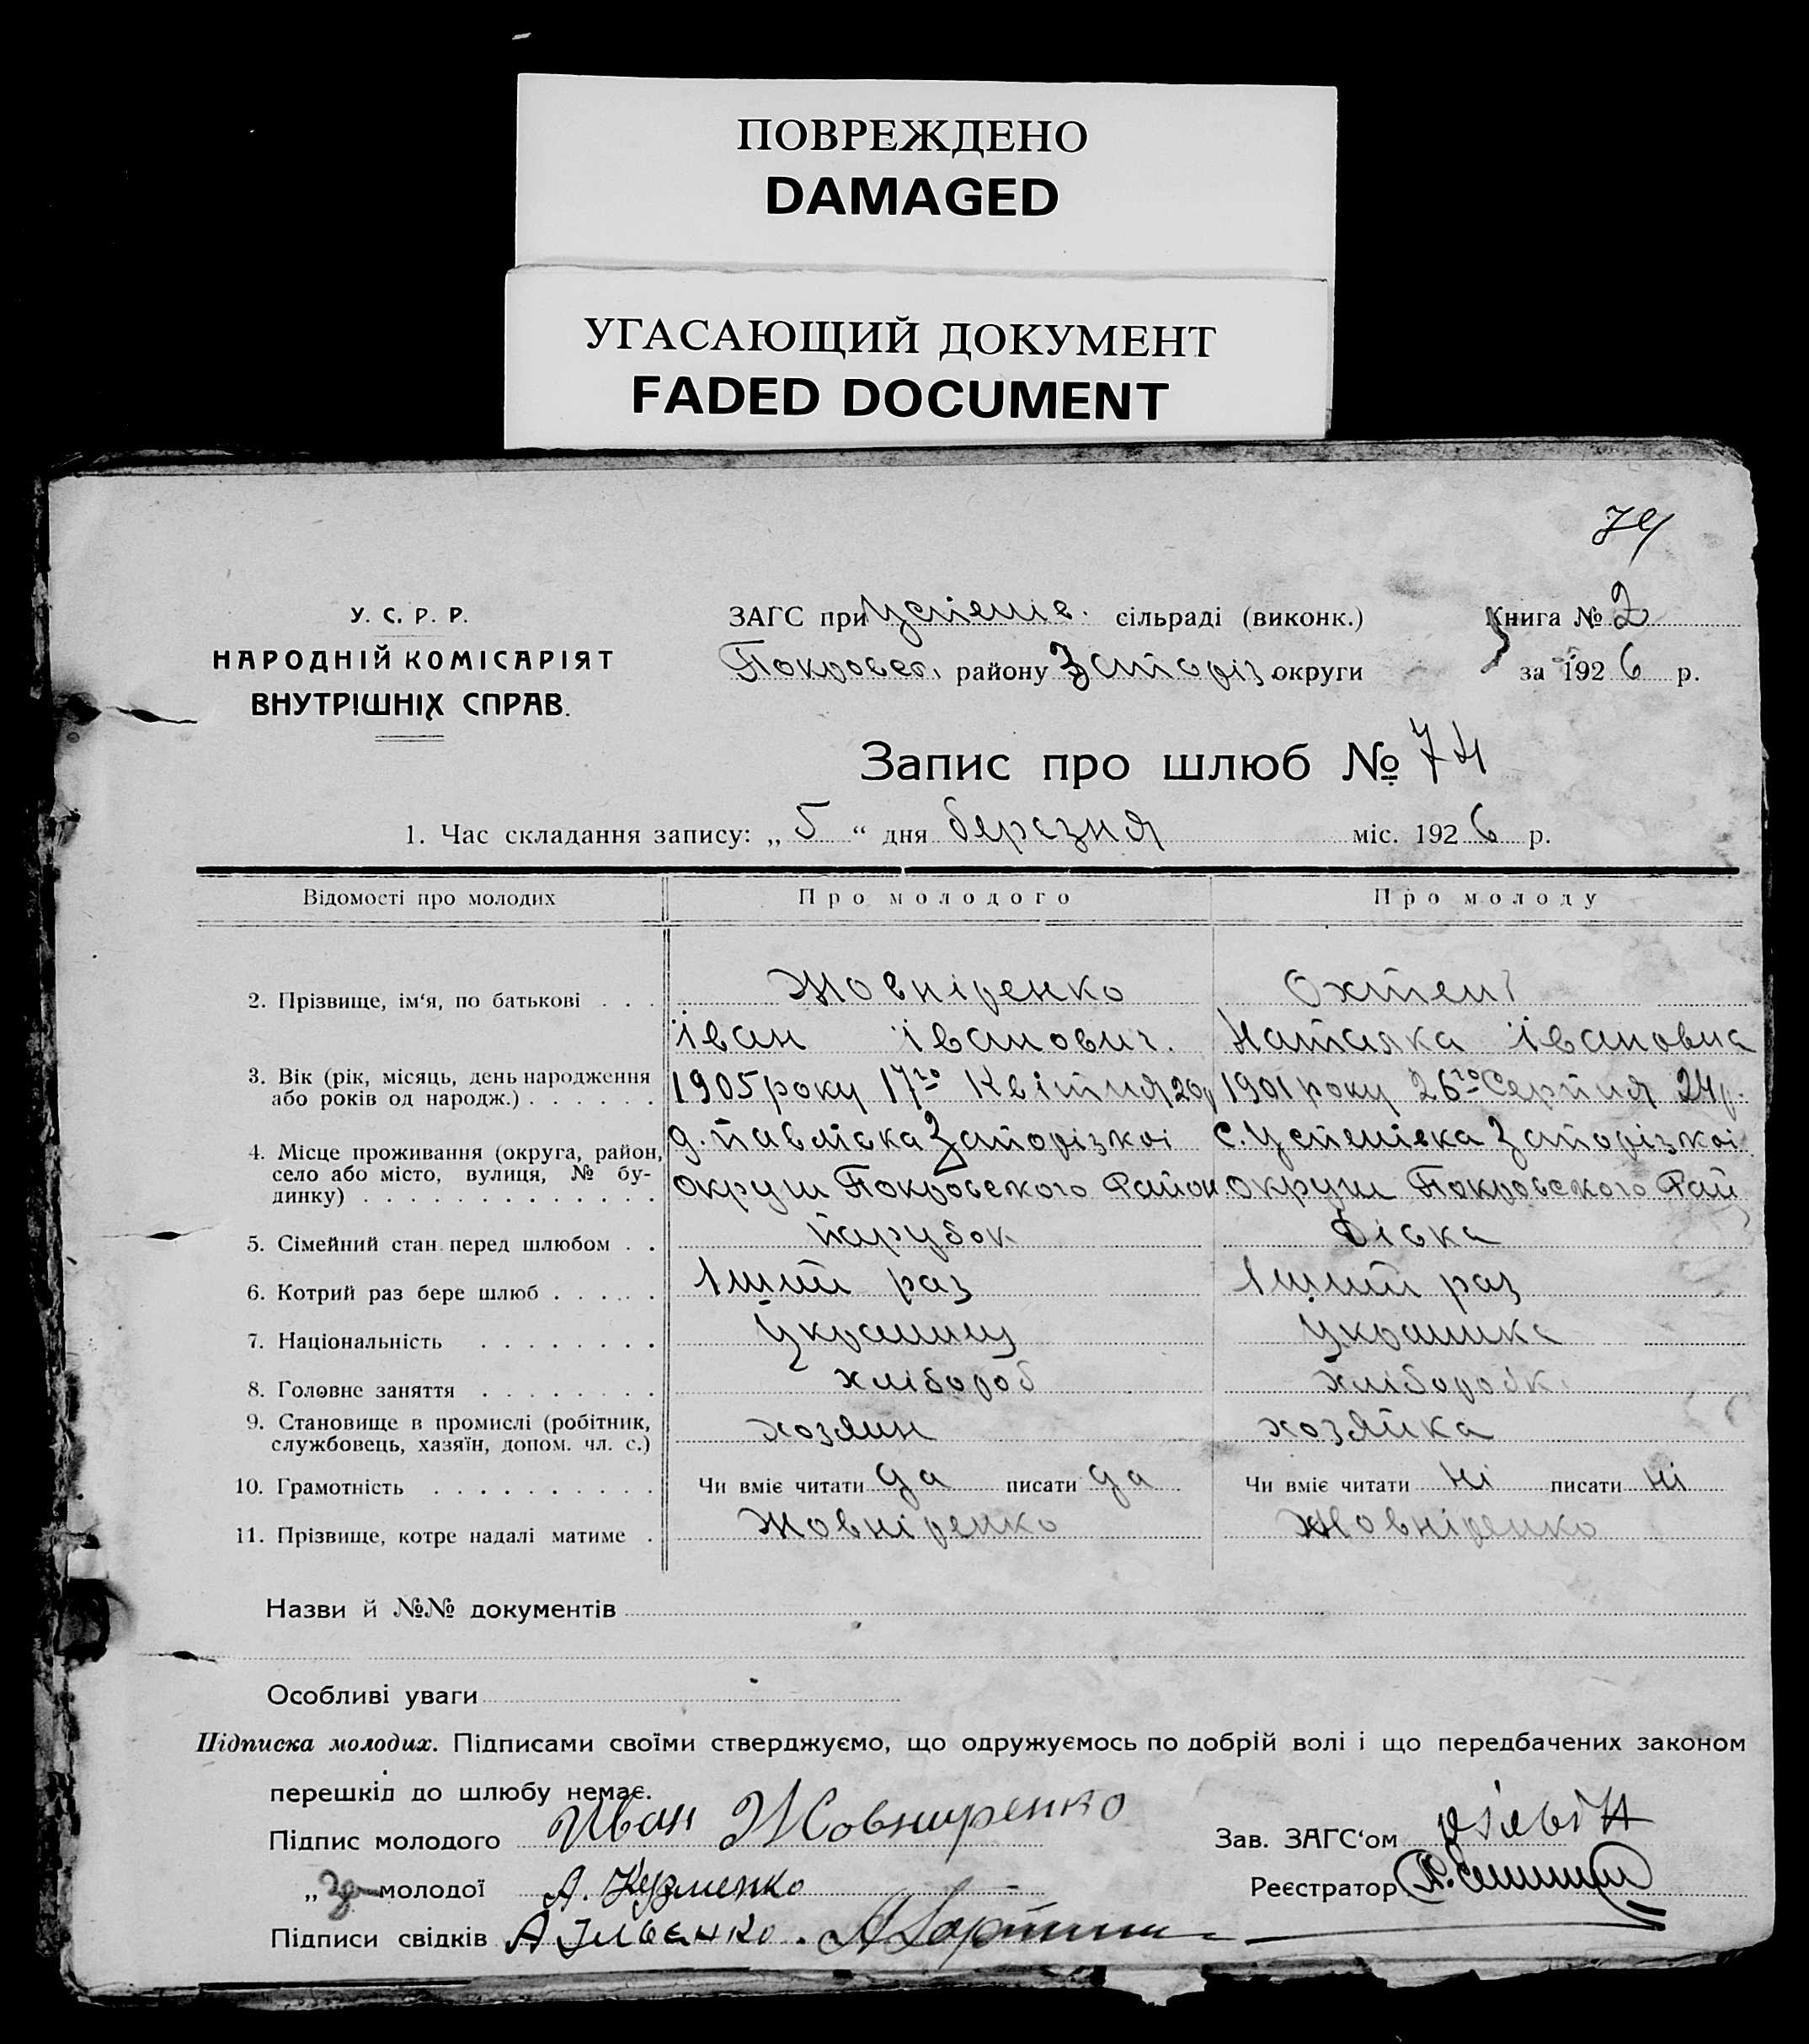 ПОВРЕЖДЕНО
DAMAGED
УГАСАЮЩИЙ ДОКУМЕНТ
FADED DOCUMENT
74
У. С. Р. Р.
НАРОДНІЙ КОМІСАРІЯТ
ВНУТРІШНІХ СПРАВ.
ЗАГС при Успенів. сільраді (виконк.)
Покровсь. району Запоріз. округи
Книга № 2
за 1926 р.
Запис про шлюб № 74
1. Час складання запису: „ 5 “ дня березня міс. 1926 р.
Відомості про молодих Про молодого Про молоду
2. Прізвище, ім‘я, по батькові . . . Жовніренко
Іван Іванович. Івановна
3. Вік (рік, місяць, день народження або років од народж.) . . . . . . 1905 року 17го Квітня 20р 1901 року 26го Серпня 24р.
4. Місце проживання (округа, район, село або місто, вулиця, № будинку) . . . . . . . . . . . . . д. Павлівка Запорізкоі с. Успенівка Запорізкоі
округи Покровського Район. округи Покровського Рай
5. Сімейний стан перед шлюбом . . Парубок Дівка
6. Котрий раз бере шлюб . . . . . 1ший раз 1ший раз
7. Національність . . . . . . . . Украинец Украинка
8. Головне заняття . . . . . . . . хлібороб хлиборобка
9. Становище в промислі (робітник, службовець, хазяїн, допом. чл. с.) хозяин хозяйка
10. Грамотність . . . . . . . . . . Чи вміє читати да писати да Чи вміє читати ні писати ні
11. Прізвище, котре надалі матиме . Жовніренко Жовніренко
Назви й №№ документів
Особливі уваги
Підписка молодих. Підписами своїми стверджуємо, що одружуємось по добрій волі і що передбачених законом
перешкід до шлюбу немає.
Підпис молодого Иван Жовниренко Зав. ЗАГС‘ом
„ за молодої А. Кузменко Реєстратор
Підписи свідків А Ільєнко.